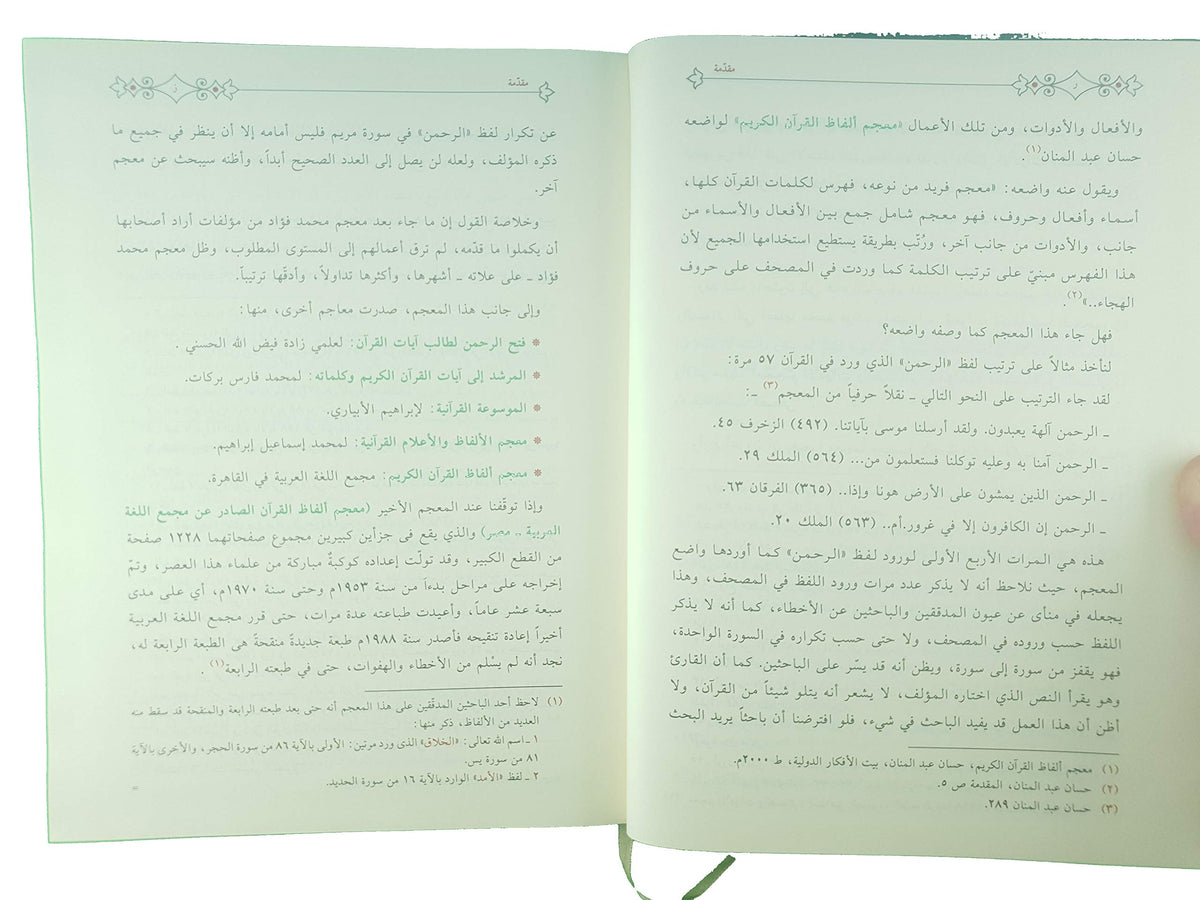 مقدّمة
ر
والأفعال والأدوات، ومن تلك الأعمال «معجم ألفاظ القرآن الكريم» لواضعه
حسان عبد المنان(١).
ويقول عنه واضعه: «معجم فريد من نوعه، فهرس لكلمات القرآن كلها،
أسماء وأفعال وحروف، فهو معجم شامل جمع بين الأفعال والأسماء من
جانب، والأدوات من جانب آخر، ورُتّب بطريقة يستطيع استخدامها الجميع لأن
هذا الفهرس مبنيّ على ترتيب الكلمة كما وردت في المصحف على حروف
الهجاء..»(٢).
فهل جاء هذا المعجم كما وصفه واضعه؟
لنأخذ مثالاً على ترتيب لفظ «الرحمن» الذي ورد في القرآن ٥٧ مرة:
لقد جاء الترتيب على النحو التالي ـ نقلاً حرفياً من المعجم(٣) ـ:
ـ الرحمن آلهة يعبدون. ولقد أرسلنا موسى بآياتنا. (٤٩٢) الزخرف ٤٥.
ـ الرحمن آمنا به وعليه توكلنا فستعلمون من... (٥٦٤) الملك ٢٩.
ـ الرحمن الذين يمشون على الأرض هونا وإذا.. (٣٦٥) الفرقان ٦٣.
ـ الرحمن إن الكافرون إلا في غرور.أم.. (٥٦٣) الملك ٢٠.
هذه هي المرات الأربع الأولى لورود لفظ «الرحمن» كما أوردها واضع
المعجم، حيث نلاحظ أنه لا يذكر عدد مرات ورود اللفظ في المصحف، وهذا
يجعله في منأى عن عيون المدققين والباحثين عن الأخطاء، كما أنه لا يذكر
اللفظ حسب وروده في المصحف، ولا حتى حسب تكراره في السورة الواحدة،
فهو يقفز من سورة إلى سورة، ويظن أنه قد يسّر على الباحثين. كما أن القارئ
وهو يقرأ النص الذي اختاره المؤلف، لا يشعر أنه يتلو شيئاً من القرآن، ولا
أظن أن هذا العمل قد يفيد الباحث في شيء، فلو افترضنا أن باحثاً يريد البحث
(١) معجم ألفاظ القرآن الكريم، حسان عبد المنان، بيت الأفكار الدولية، ط ٢٠٠٠م.
(٢) حسان عبد المنان، المقدمة ص ٥.
(٣) حسان عبد المنان ٢٨٩.
مقدّمة
ز
عن تكرار لفظ «الرحمن» في سورة مريم فليس أمامه إلا أن ينظر في جميع ما
ذكره المؤلف، ولعله لن يصل إلى العدد الصحيح أبداً، وأظنه سيبحث عن معجم
آخر.
وخلاصة القول إن ما جاء بعد معجم محمد فؤاد من مؤلفات أراد أصحابها
أن يكملوا ما قدّمه، لم ترق أعمالهم إلى المستوى المطلوب، وظل معجم محمد
فؤاد ـ على علاته ـ أشهرها، وأكثرها تداولاً، وأدقّها ترتيباً.
وإلى جانب هذا المعجم، صدرت معاجم أخرى، منها:
* فتح الرحمن لطالب آيات القرآن: لعلمي زادة فيض الله الحسني .
* المرشد إلى آيات القرآن الكريم وكلماته: لمحمد فارس بركات.
* الموسوعة القرآنية: لإبراهيم الأبياري.
* معجم الألفاظ والأعلام القرآنية: لمحمد إسماعيل إبراهيم.
* معجم ألفاظ القرآن الكريم: مجمع اللغة العربية في القاهرة.
وإذا توقّفنا عند المعجم الأخير (معجم ألفاظ القرآن الصادر عن مجمع اللغة
العربية ـ مصر) والذي يقع في جزأين كبيرين مجموع صفحاتهما ١٢٢٨ صفحة
من القطع الكبير، وقد تولّت إعداده كوكبةٌ مباركة من علماء هذا العصر، وتمّ
إخراجه على مراحل بدءاً من سنة ١٩٥٣م وحتى سنة ١٩٧٠م، أي على مدى
سبعة عشر عاماً، وأعيدت طباعته عدة مرات، حتى قرر مجمع اللغة العربية
أخيراً إعادة تنقيحه فأصدر سنة ١٩٨٨م طبعة جديدةً منقحةً هى الطبعة الرابعة له،
نجد أنه لم يسْلم من الأخطاء والهفوات، حتى في طبعته الرابعة(١).
(١) لاحظ أحد الباحثين المدققين على هذا المعجم أنه حتى بعد طبعته الرابعة والمنقحة قد سقط منه
العديد من الألفاظ، ذكر منها:
١ ـ اسم الله تعالى: «الخلاق» الذى ورد مرتين: الأولى بالآية ٨٦ من سورة الحجر، والأخرى بالآية
٨١ من سورة يس.
٢ ـ لفظ «الأمد» الوارد بالآية ١٦ من سورة الحديد.
=